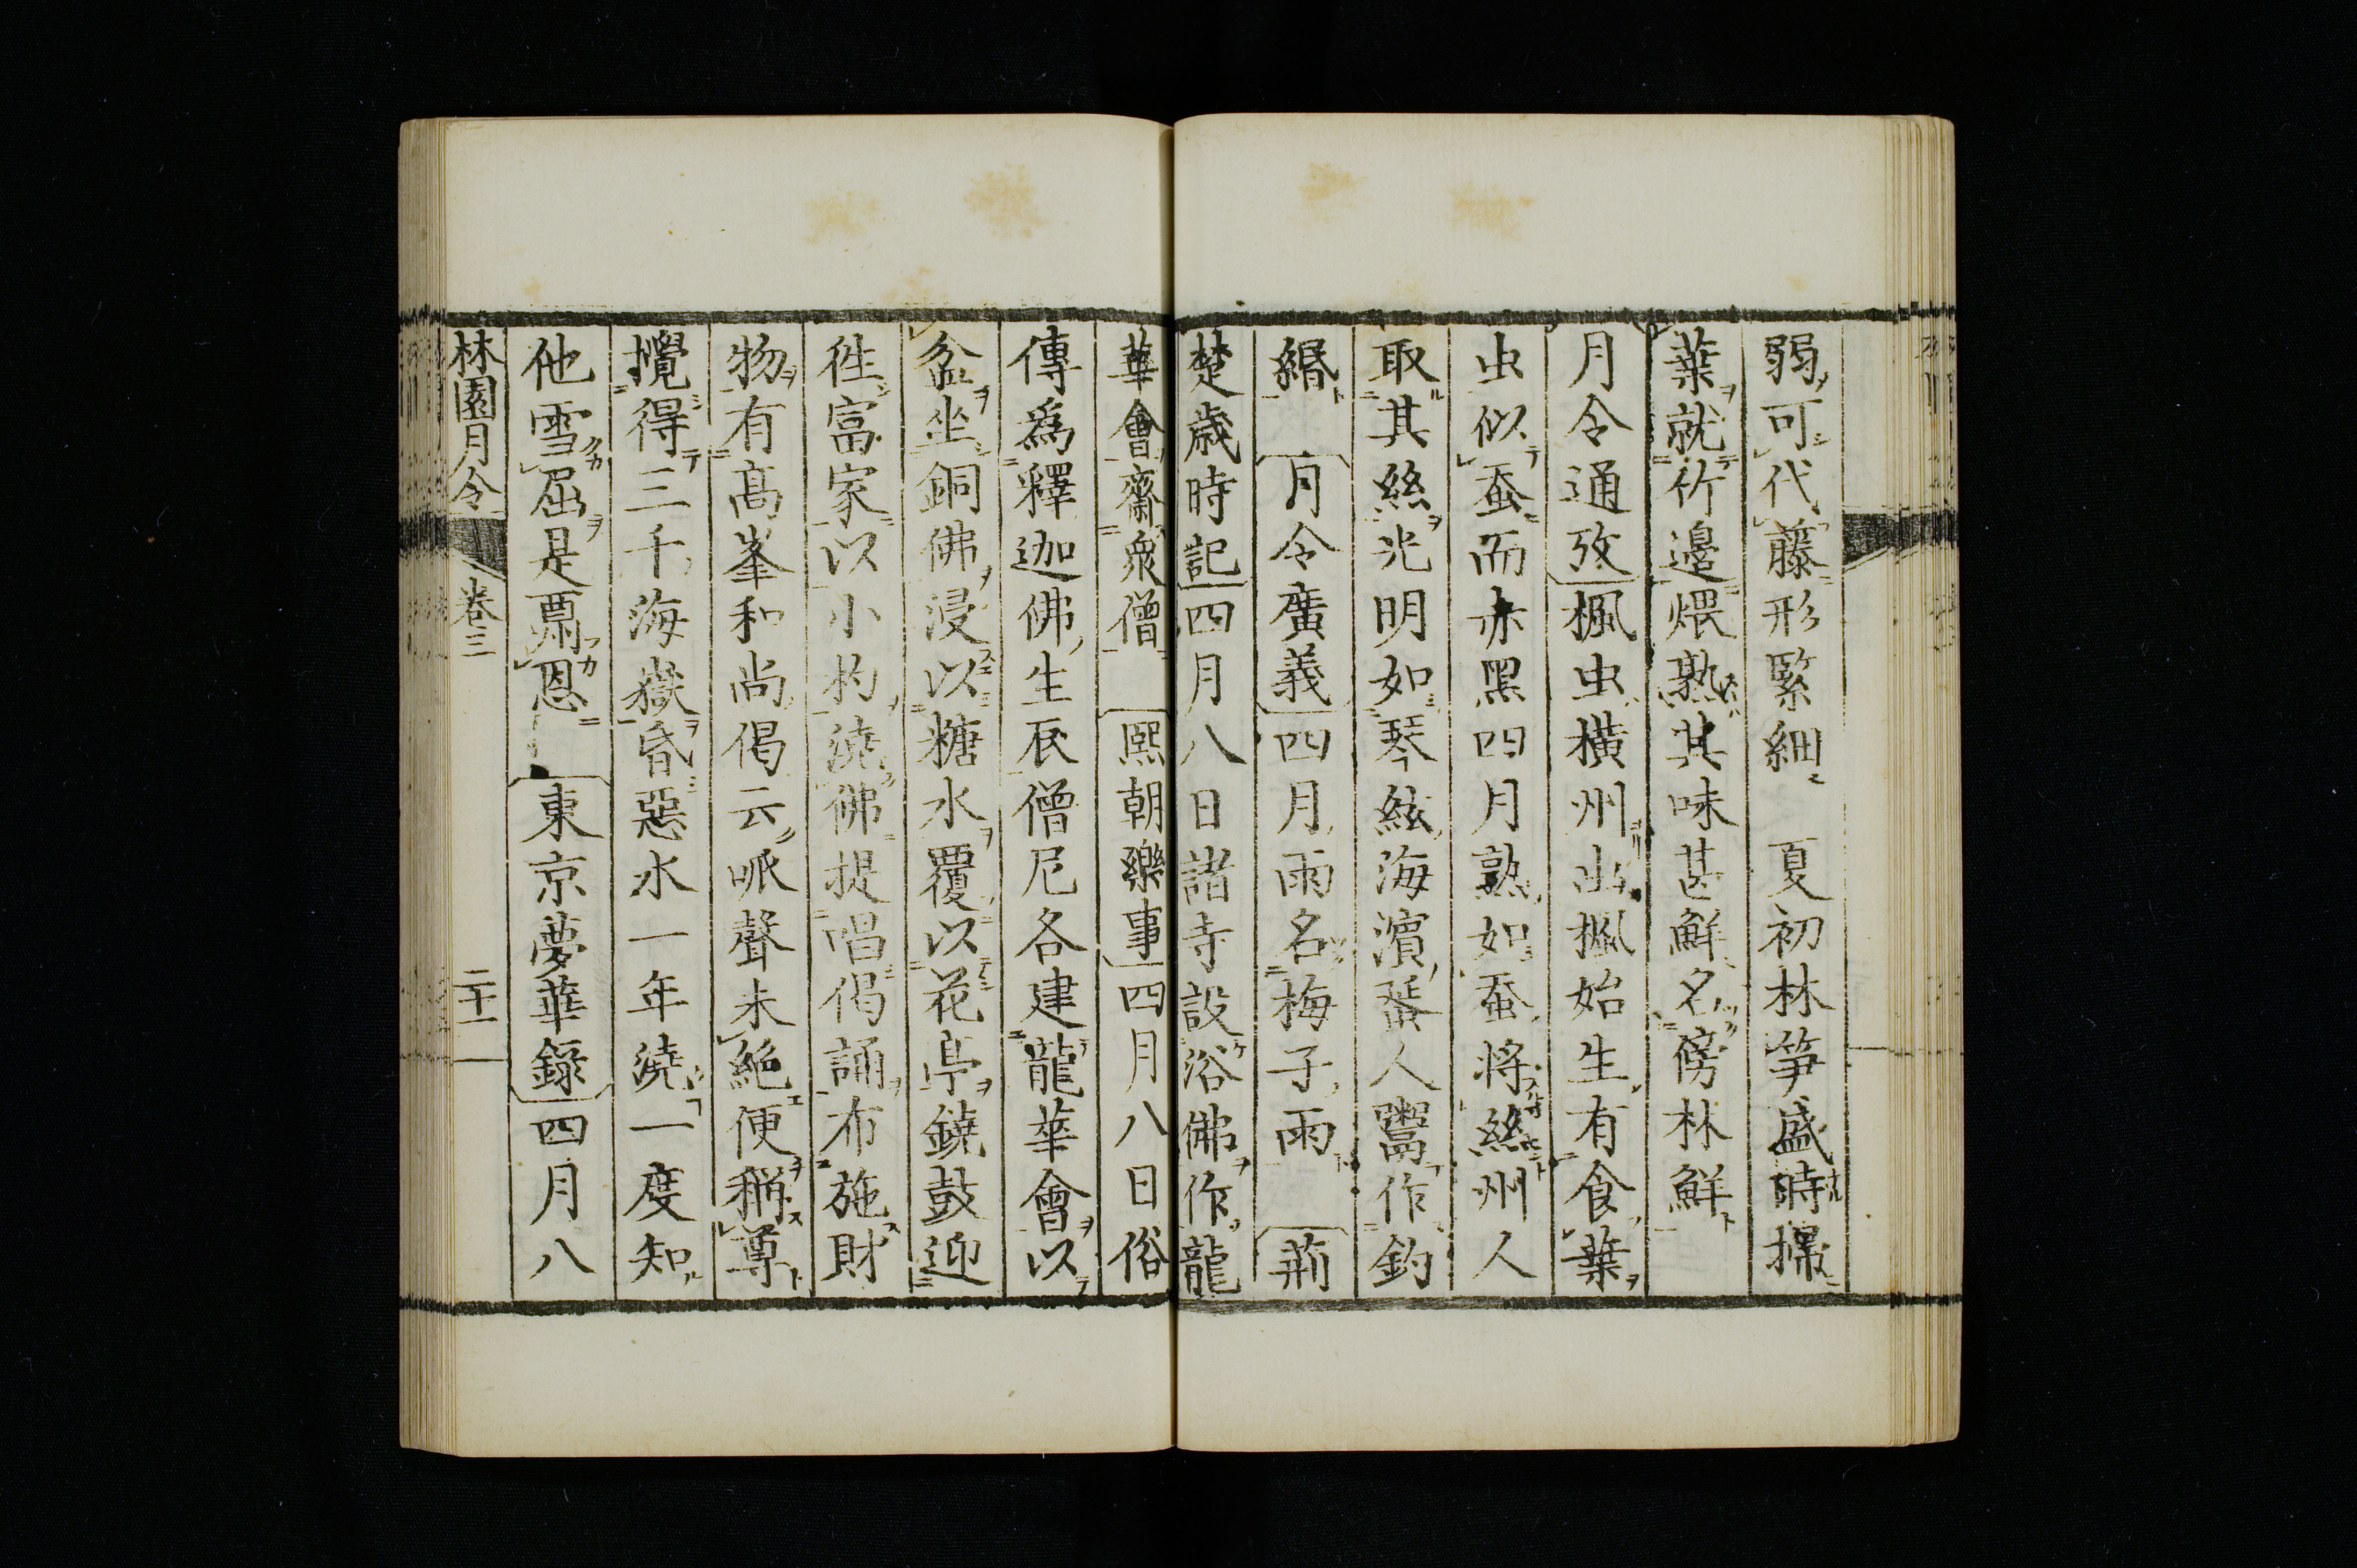 弱可代藤形緊細　夏初林笋盛時掃
葉就竹邊煨熟其味甚鮮名傍林鮮
月令通攷楓虫橫州出楓始生有食葉
虫似蚕而赤黑四月熟如蚕將絲州人
取其絲光明如琴絃海濵蜑人鬻作釣
緡　月令廣義四月雨名梅子雨　荊
楚歲時記四月八日諸寺設浴佛作龍
華會齋衆僧　熙朝樂事四月八日俗
傳爲釋迦佛生辰僧尼各建龍華會以
盆坐銅佛浸以糖水覆以花亭鐃鼓迎
徃富家以小杓澆佛提唱偈誦布施財
物有高峯和尚偈云哌聲未絶便稱尊
攪得三千海嶽昏惡水一年澆一度知
他雪屈是酬恩　東京夢華錄四月八
林園月令　卷三　二十一